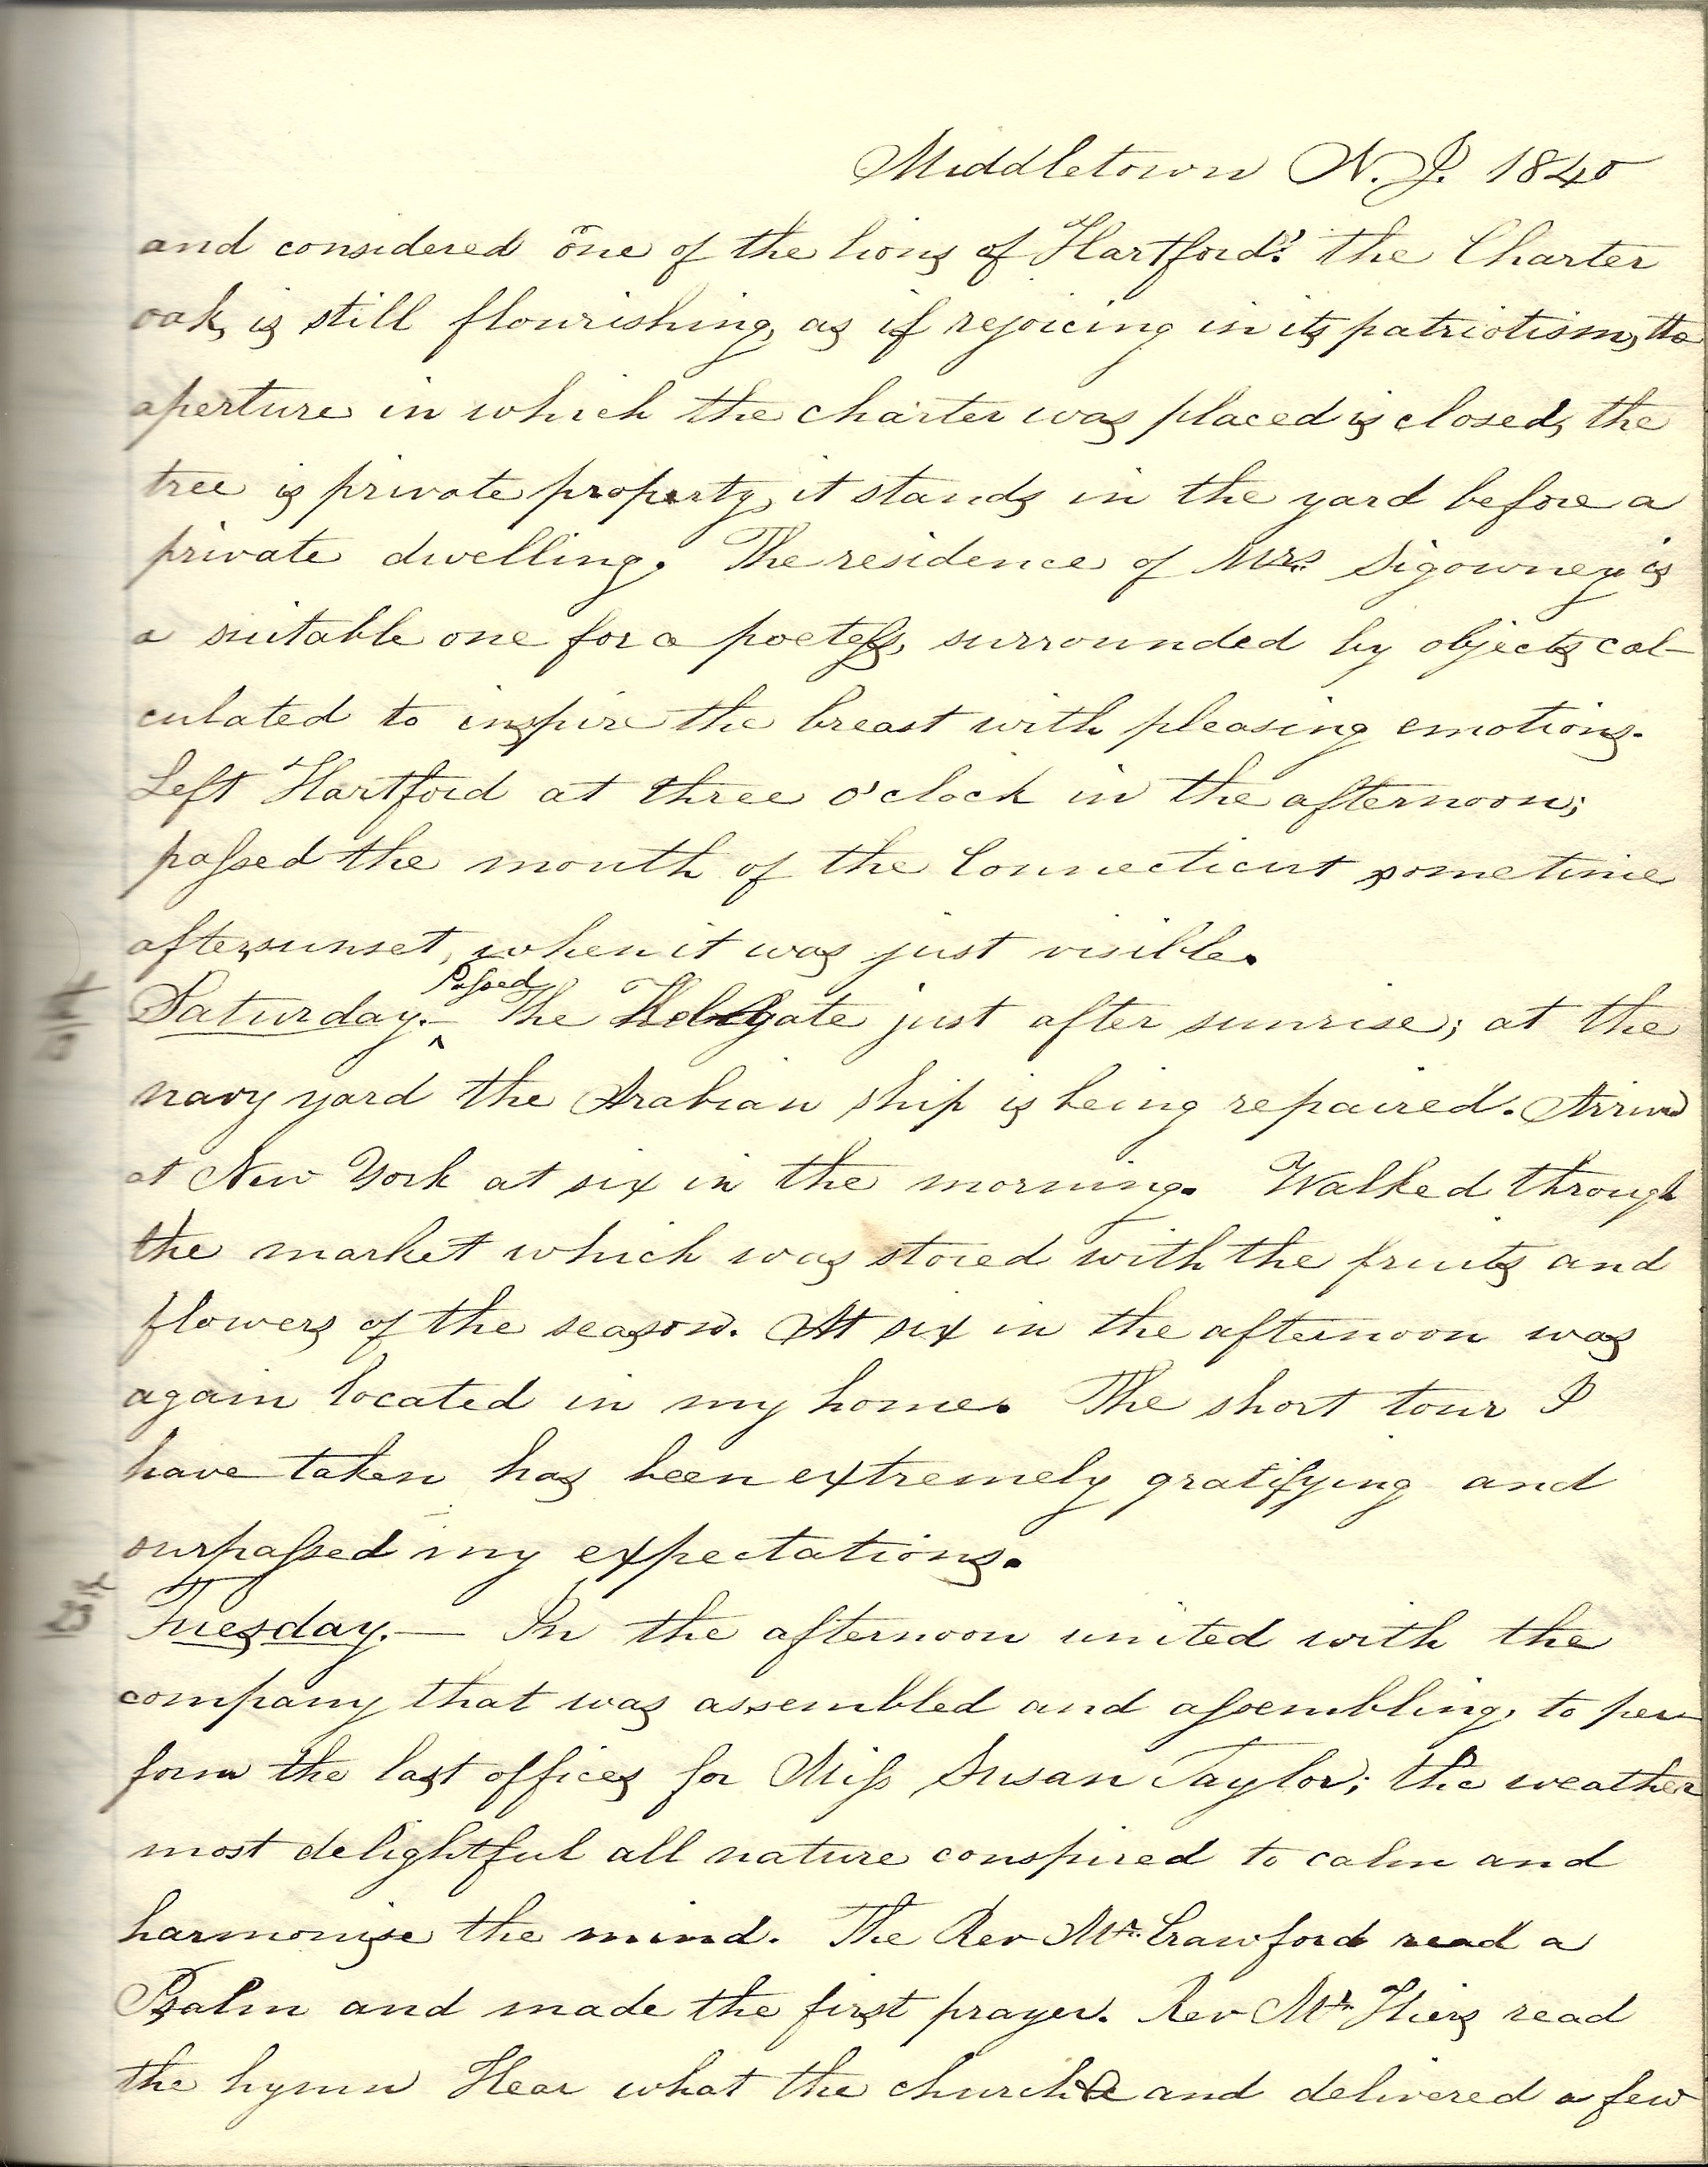 Middletown N.J. 1840
and considered "one of the lions of Hartford": the Charter
oak, is still flourishing, as if rejoicing in its patriotism, the
aperture in which the charter was placed is closed, the
tree is private property, it stands in the yard before a
private dwelling. The residence of Mrs. Sigourney is
a suitable one for a poetess, surrounded by objects cal-
culated to inspire the breast with pleasing emotions.
Left Hartford at three o'clock in the afternoon;
passed the mouth of the Connecticut sometime
after sunset, when it was just visible.
Passed
Saturday.— The gate just after sunrise; at the
navy yard the Arabian ship is being repaired. Arrived
at New York at six in the morning. Walked through
the market which was stored with the fruits and
flowers of the season. At six in the afternoon was
again located in my home. The short tour I
have taken has been extremely gratifying and
surpassed my expectations.
Tuesday.— In the afternoon united with the
company that was assembled and assembling, to per
form the last offices for Miss Susan Taylor; the weather
most delightful all nature conspired to calm and
harmonise the mind. The Rev Mr. Crawford read a
Psalm and made the first prayer. Rev Mr. Hiers read
the hymn Hear what the church &c and delivered a few